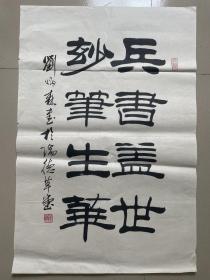 兵書盖世
妙筆生華
劉炳森書於陽德草堂